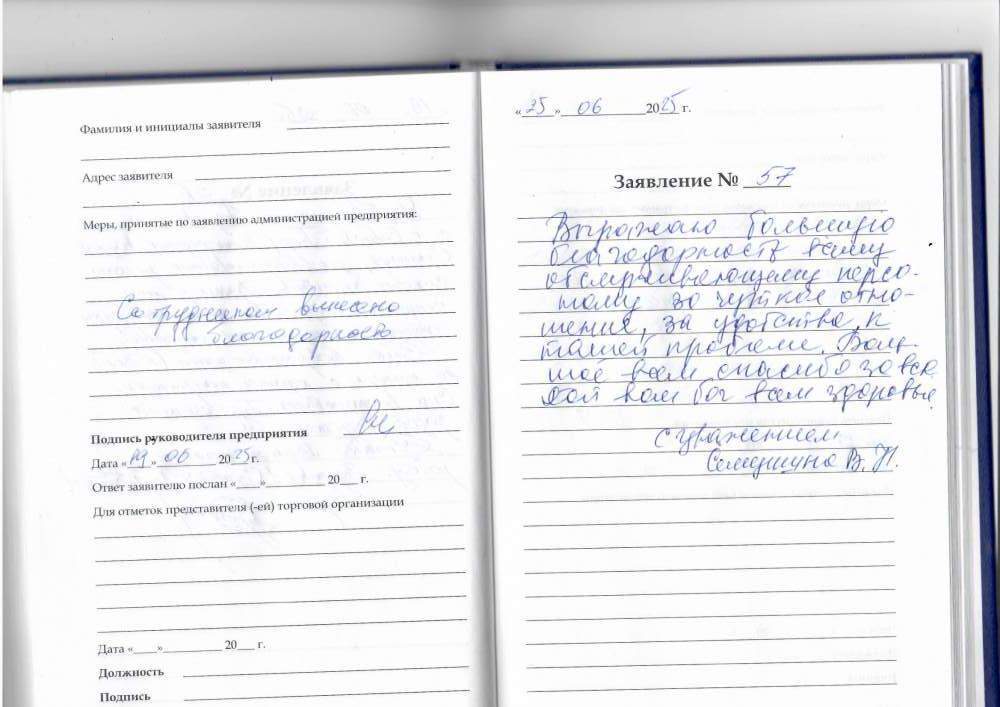 Фамилия и инициалы заявителя
Адрес заявителя
Меры, принятые по заявлению администрацией предприятия:
Сотрудникам вынесено
благодарность
Подпись руководителя предприятия
Дата «19» 06 2025г.
Ответ заявителю послан «____»__________ 20___ г.
Для отметок представителя (-ей) торговой организации
Дата «____»__________ 20___ г.
Должность
Подпись
«25» 06 2025 г.
Заявление № 57
Выражаю большую
благодарность всему
обслуживающему персо-
налу за чуткое отно-
шение, за удобства, к
нашей проблеме. Боль-
шое всем спасибо за все
дай вам бог всем здоровья.
с уважением
В. П.